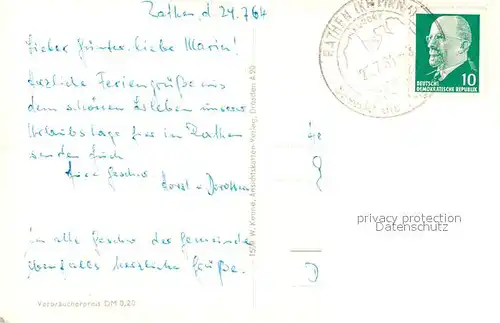 Rathen, d 24.7.64
Lieber Günter, liebe Marin!
herzliche Feriengrüße aus
dem schönen Erleben unserer
Urlaubstage hier in Rathen
senden Euch
Eure Geschw.
Horst u Dorothea
An alle Geschw der Gemeinde
ebenfalls herzliche Grüße.
Verbraucherpreis DM 0,20
W. Kenne, Ansichtskarten-Verlag, Dresden A 20
RATHEN (KR PIRNA)
10
DEUTSCHE
DEMOKRATISCHE REPUBLIK
privacy protection
Datenschutz